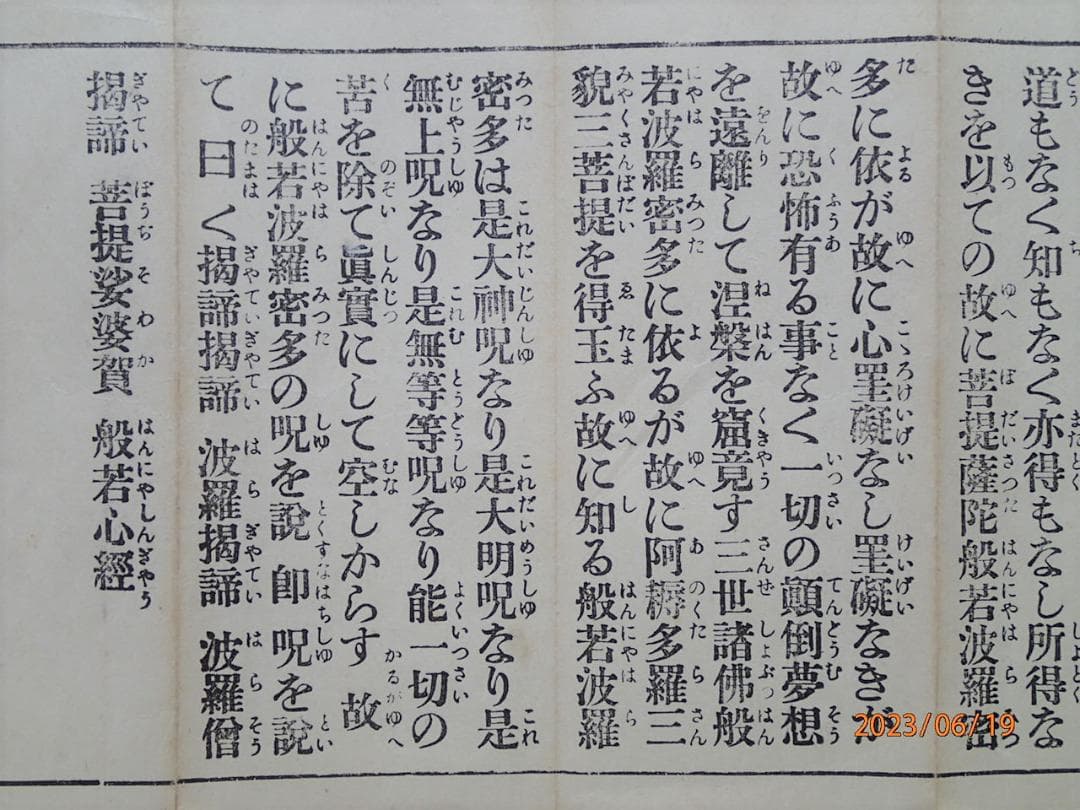 道もなく知もなく亦得もなし所得な
きを以ての故に菩提薩陀般若波羅密
多に依が故に心罣礙なし罣礙なきが
故に恐怖有る事なく一切の顛倒夢想
を遠離して涅槃を窟竟す三世諸佛般
若波羅密多に依るが故に阿耨多羅三
貌三菩提を得玉ふ故に知る般若波羅
密多は是大神呪なり是大明呪なり是
無上呪なり是無等等呪なり能一切の
苦を除て眞實にして空しからす 故
に般若波羅密多の呪を說 卽 呪を說
て曰く揭諦揭諦 波羅揭諦 波羅僧
揭諦 菩提娑婆賀 般若心經
2023/06/19